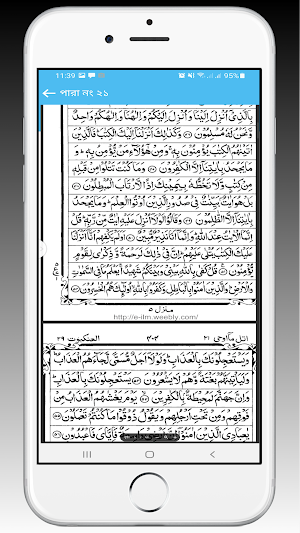 11:39 95%
পারা নং ২১
بِالَّذِیْۤ اُنْزِلَ اِلَیْنَا وَاُنْزِلَ اِلَیْكُمْ وَاِلٰهُنَا وَاِلٰهُكُمْ وَاحِدٌ
وَّنَحْنُ لَهٗ مُسْلِمُوْنَ ۝ وَكَذٰلِكَ اَنْزَلْنَاۤ اِلَیْكَ الْكِتٰبَ ؕ فَالَّذِیْنَ
اٰتَیْنٰهُمُ الْكِتٰبَ یُؤْمِنُوْنَ بِهٖ ۚ وَمِنْ هٰۤؤُلَآءِ مَنْ یُّؤْمِنُ بِهٖ ؕ وَ
مَا یَجْحَدُ بِاٰیٰتِنَاۤ اِلَّا الْكٰفِرُوْنَ ۝ وَمَا كُنْتَ تَتْلُوْا مِنْ قَبْلِهٖ
مِنْ كِتٰبٍ وَّلَا تَخُطُّهٗ بِیَمِیْنِكَ اِذًا لَّارْتَابَ الْمُبْطِلُوْنَ ۝ بَلْ
هُوَ اٰیٰتٌۢ بَیِّنٰتٌ فِیْ صُدُوْرِ الَّذِیْنَ اُوْتُوا الْعِلْمَ ؕ وَمَا یَجْحَدُ
بِاٰیٰتِنَاۤ اِلَّا الظّٰلِمُوْنَ ۝ وَقَالُوْا لَوْلَاۤ اُنْزِلَ عَلَیْهِ اٰیٰتٌ مِّنْ رَّبِّهٖ ؕ قُلْ
اِنَّمَا الْاٰیٰتُ عِنْدَ اللّٰهِ ؕ وَاِنَّمَاۤ اَنَا نَذِیْرٌ مُّبِیْنٌ ۝ اَوَلَمْ یَكْفِهِمْ اَنَّاۤ اَنْزَلْنَا
عَلَیْكَ الْكِتٰبَ یُتْلٰی عَلَیْهِمْ ؕ اِنَّ فِیْ ذٰلِكَ لَرَحْمَةً وَّ ذِكْرٰی لِقَوْمٍ
یُّؤْمِنُوْنَ ۝ قُلْ كَفٰی بِاللّٰهِ بَیْنِیْ وَبَیْنَكُمْ شَهِیْدًا ۚ یَعْلَمُ مَا فِی السَّمٰوٰتِ
وَالْاَرْضِ ؕ وَالَّذِیْنَ اٰمَنُوْا بِالْبَاطِلِ وَكَفَرُوْا بِاللّٰهِ ۙ اُولٰٓئِكَ هُمُ الْخٰسِرُوْنَ ۝
منزل ۵
http://e-ilm.weebly.com/
اتل مآ اوحی ۲۱ العنكبوت ۲۹
وَیَسْتَعْجِلُوْنَكَ بِالْعَذَابِ ؕ وَلَوْلَاۤ اَجَلٌ مُّسَمًّی لَّجَآءَهُمُ الْعَذَابُ ؕ
وَلَیَاْتِیَنَّهُمْ بَغْتَةً وَّهُمْ لَا یَشْعُرُوْنَ ۝ یَسْتَعْجِلُوْنَكَ بِالْعَذَابِ ؕ
وَاِنَّ جَهَنَّمَ لَمُحِیْطَةٌۢ بِالْكٰفِرِیْنَ ۝ یَوْمَ یَغْشٰهُمُ الْعَذَابُ
مِنْ فَوْقِهِمْ وَمِنْ تَحْتِ اَرْجُلِهِمْ وَیَقُوْلُ ذُوْقُوْا مَا كُنْتُمْ تَعْمَلُوْنَ ۝
یٰعِبَادِیَ الَّذِیْنَ اٰمَنُوْۤا فَاِیَّایَ فَاعْبُدُوْنِ ۝